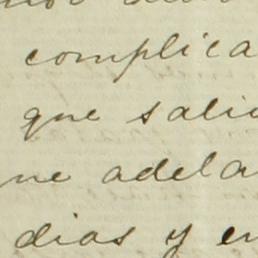 complica
que salic
ne adela
dias y en